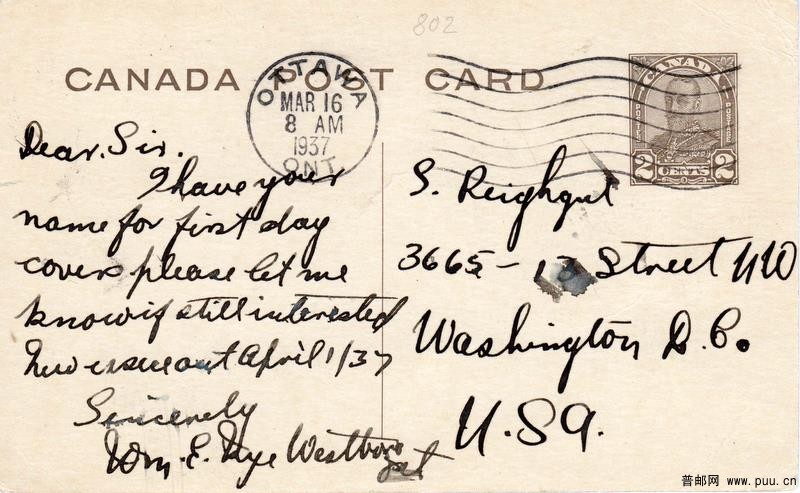 802
CANADA POST CARD
OTTAWA
MAR 16
8 AM
1937
ONT.
CANADA
POSTES POSTAGE
2 CENTS 2
Dear Sir.
I have your
name for first day
covers please let me
know if still interested
New issue out April 1/37
Sincerely
Wm. E. Nye Westboro
Ont
S. Reighgut
3665 - 13 Street NW
Washington D.C.
U.S.A.
普邮网 www.puu.cn